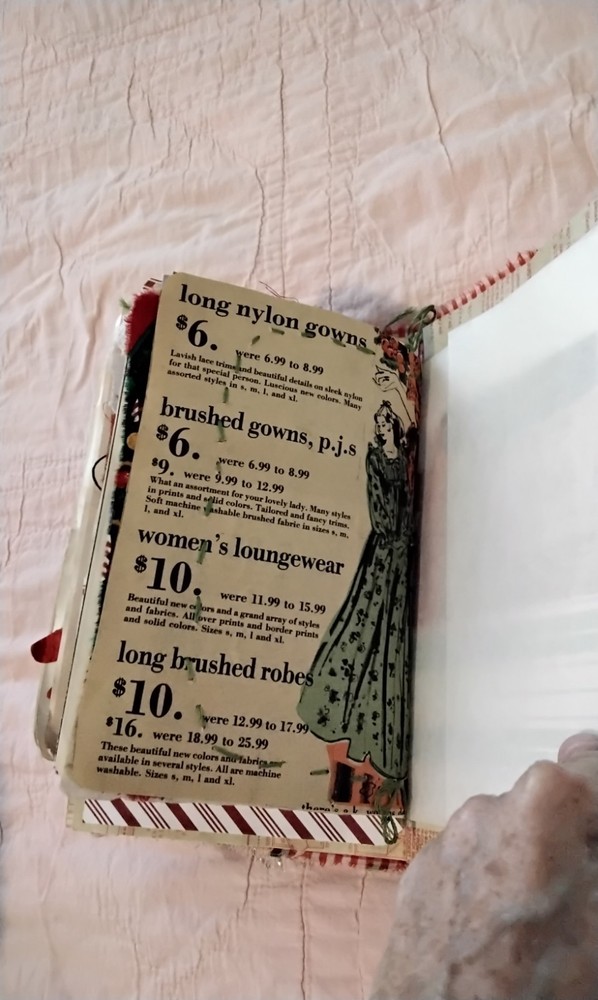 long nylon gowns
$6. were 6.99 to 8.99
Lavish lace trims and beautiful details on sleek nylon
for that special person. Luscious new colors. Many
assorted styles in s, m, l, and xl.
brushed gowns, p.j.s
$6. were 6.99 to 8.99
$9. were 9.99 to 12.99
What an assortment for your lovely lady. Many styles
in prints and solid colors. Tailored and fancy trims.
Soft machine washable brushed fabric in sizes s, m,
l, and xl.
women's loungewear
$10. were 11.99 to 15.99
Beautiful new colors and a grand array of styles
and fabrics. All over prints and border prints
and solid colors. Sizes s, m, l and xl.
long brushed robes
$10. were 12.99 to 17.99
$16. were 18.99 to 25.99
These beautiful new colors and fabrics
available in several styles. All are machine
washable. Sizes s, m, l and xl.
there's a k